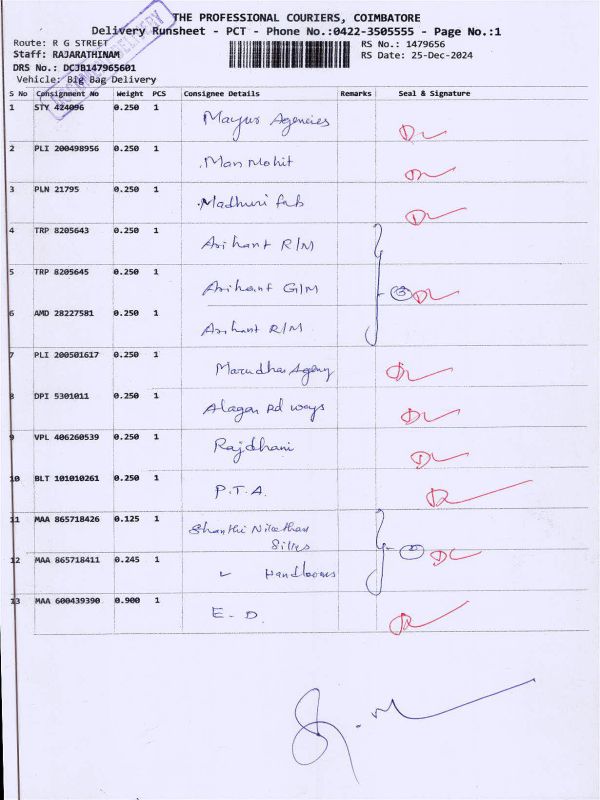 THE PROFESSIONAL COURIERS, COIMBATORE
Delivery Runsheet - PCT - Phone No.:0422-3505555 - Page No.:1
Route: R G STREET
RS No.: 1479656
Staff: RAJARATHINAM
RS Date: 25-Dec-2024
DRS No.: DCJB147965601
Vehicle: Big Bag Delivery
S No Consignment No Weight PCS Consignee Details Remarks Seal & Signature
1 STY 424096 0.250 1 Mayur Agencies
2 PLI 200498956 0.250 1 Man Mohit
3 PLN 21795 0.250 1 Madhuri fab
4 TRP 8205643 0.250 1 Arihant R/M
5 TRP 8205645 0.250 1 Arihant G/M ③
6 AMD 28227581 0.250 1 Arihant R/M
7 PLI 200501617 0.250 1 Marudhar Agency
8 DPI 5301011 0.250 1 Alagar Rd ways
9 VPL 406260539 0.250 1 Rajdhani
10 BLT 101010261 0.250 1 P.T.A.
11 MAA 865718426 0.125 1 Shanthi
Silks
12 MAA 865718411 0.245 1 Handlooms
13 MAA 600439390 0.900 1 E - D